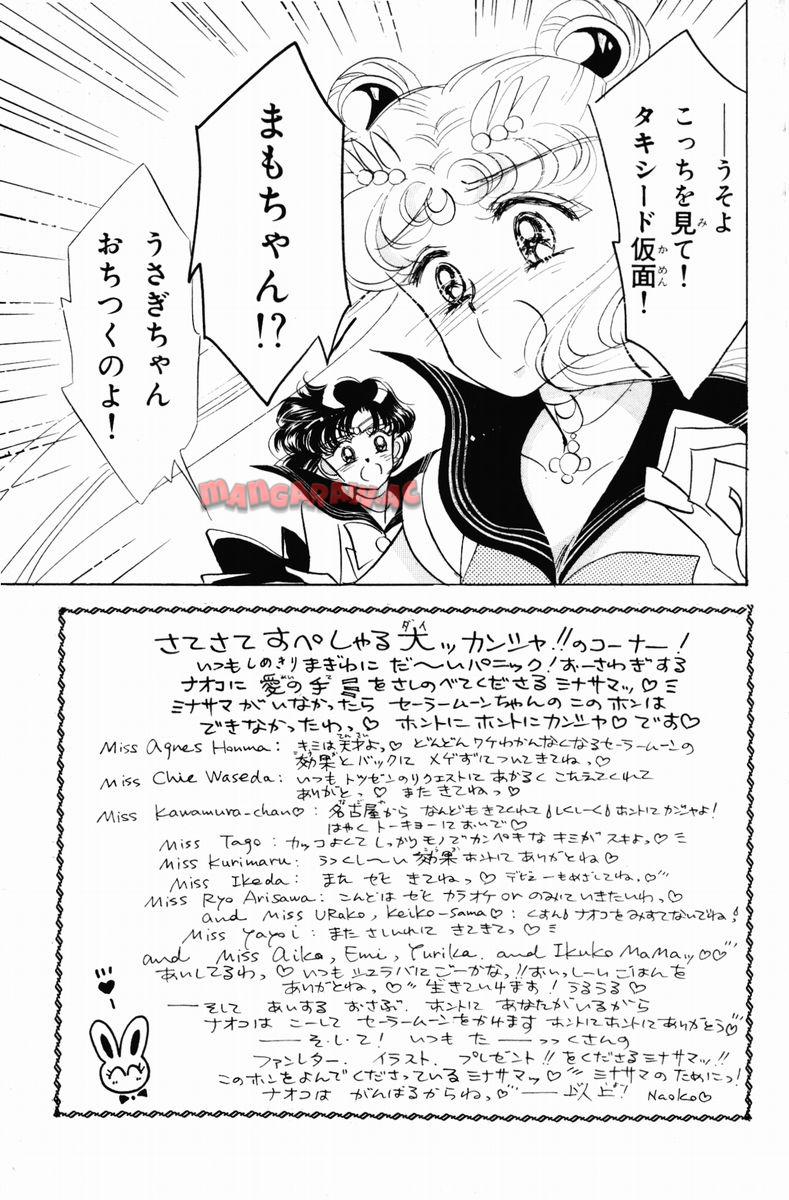 ——うそよ
こっちを見て！
タキシード仮面！
み
かめん
まもちゃん!?
うさぎちゃん
おちつくのよ！
MANGARAWAC
さてさて すぺしゃる 大ッカンシャ!!のコーナー！
ダイ
いつもしめきりまぎわに だ〜いパニック！おーさわぎする
ナオコに 愛の手をさしのべてくださる ミナサマッ♡
ミナサマがいなかったら セーラームーンちゃんの このホンは
できなかったわっ♡ ホントにホントにカンシャ♡です♡
Miss Agnes Honma: キミは天才よっ♡ どんどんワケわかんなくなるセーラームーンの
効果とバックに メゲずについてきてねっ♡
Miss Chie Waseda: いつも トツゼンのリクエストに あかるく こたえてくれて
ありがとっ♡ また きてねっ♡
Miss Kawamura-chan♡: 名古屋から なんどもきてくれて しくしーく ホントにカンシャよ！
はやく トーキョーに おいで♡
Miss Tago: カッコよくて しっかりモノで カンペキな キミが スキよっ♡
Miss Kurimaru: うっくし〜い 効果 ホントに ありがとね♡
Miss Ikeda: また ぜひ きてねっ♡ デビューもめざしてね。
Miss Ryo Arisawa: こんどは ぜひ カラオケ or のみに いきたいわっ♡
and Miss Urako, Keiko-sama♡: くすん ナオコを みすてないでね
Miss Yayoi: また さしいれに きてぎてっ♡
and Miss Aiko, Emi, Yurika. and Ikuko MaMaッ♡♡
あいしてるわっ♡ いつも シュラバに ごーかなっ!! おいっしーい ごはんを
ありがとねっ♡ 生きていけます！うるうる♡
——そして あいする おさぶ。ホントに あなたが いるから
ナオコは こーして セーラームーンを かけます ホントにホントに ありがとう♡
——そ、し、て！ いつも た——っっくさんの
ファンレター、イラスト、プレゼント!!を くださる ミナサマッ!!
このホンを よんで くださっている ミナサマッ♡ ミナサマの ためにっ！
ナオコは がんばるからねっ♡ ——以上！ Naoko♡